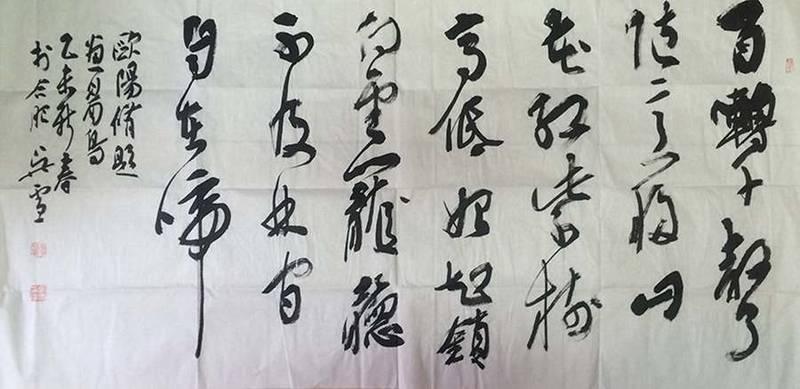 百囀千聲
随意移山
花紅紫樹
高低始知鎖
向金籠聽
不及林间
自在啼
歐陽脩題
畫眉鳥
乙未新春
於合肥 吳雪